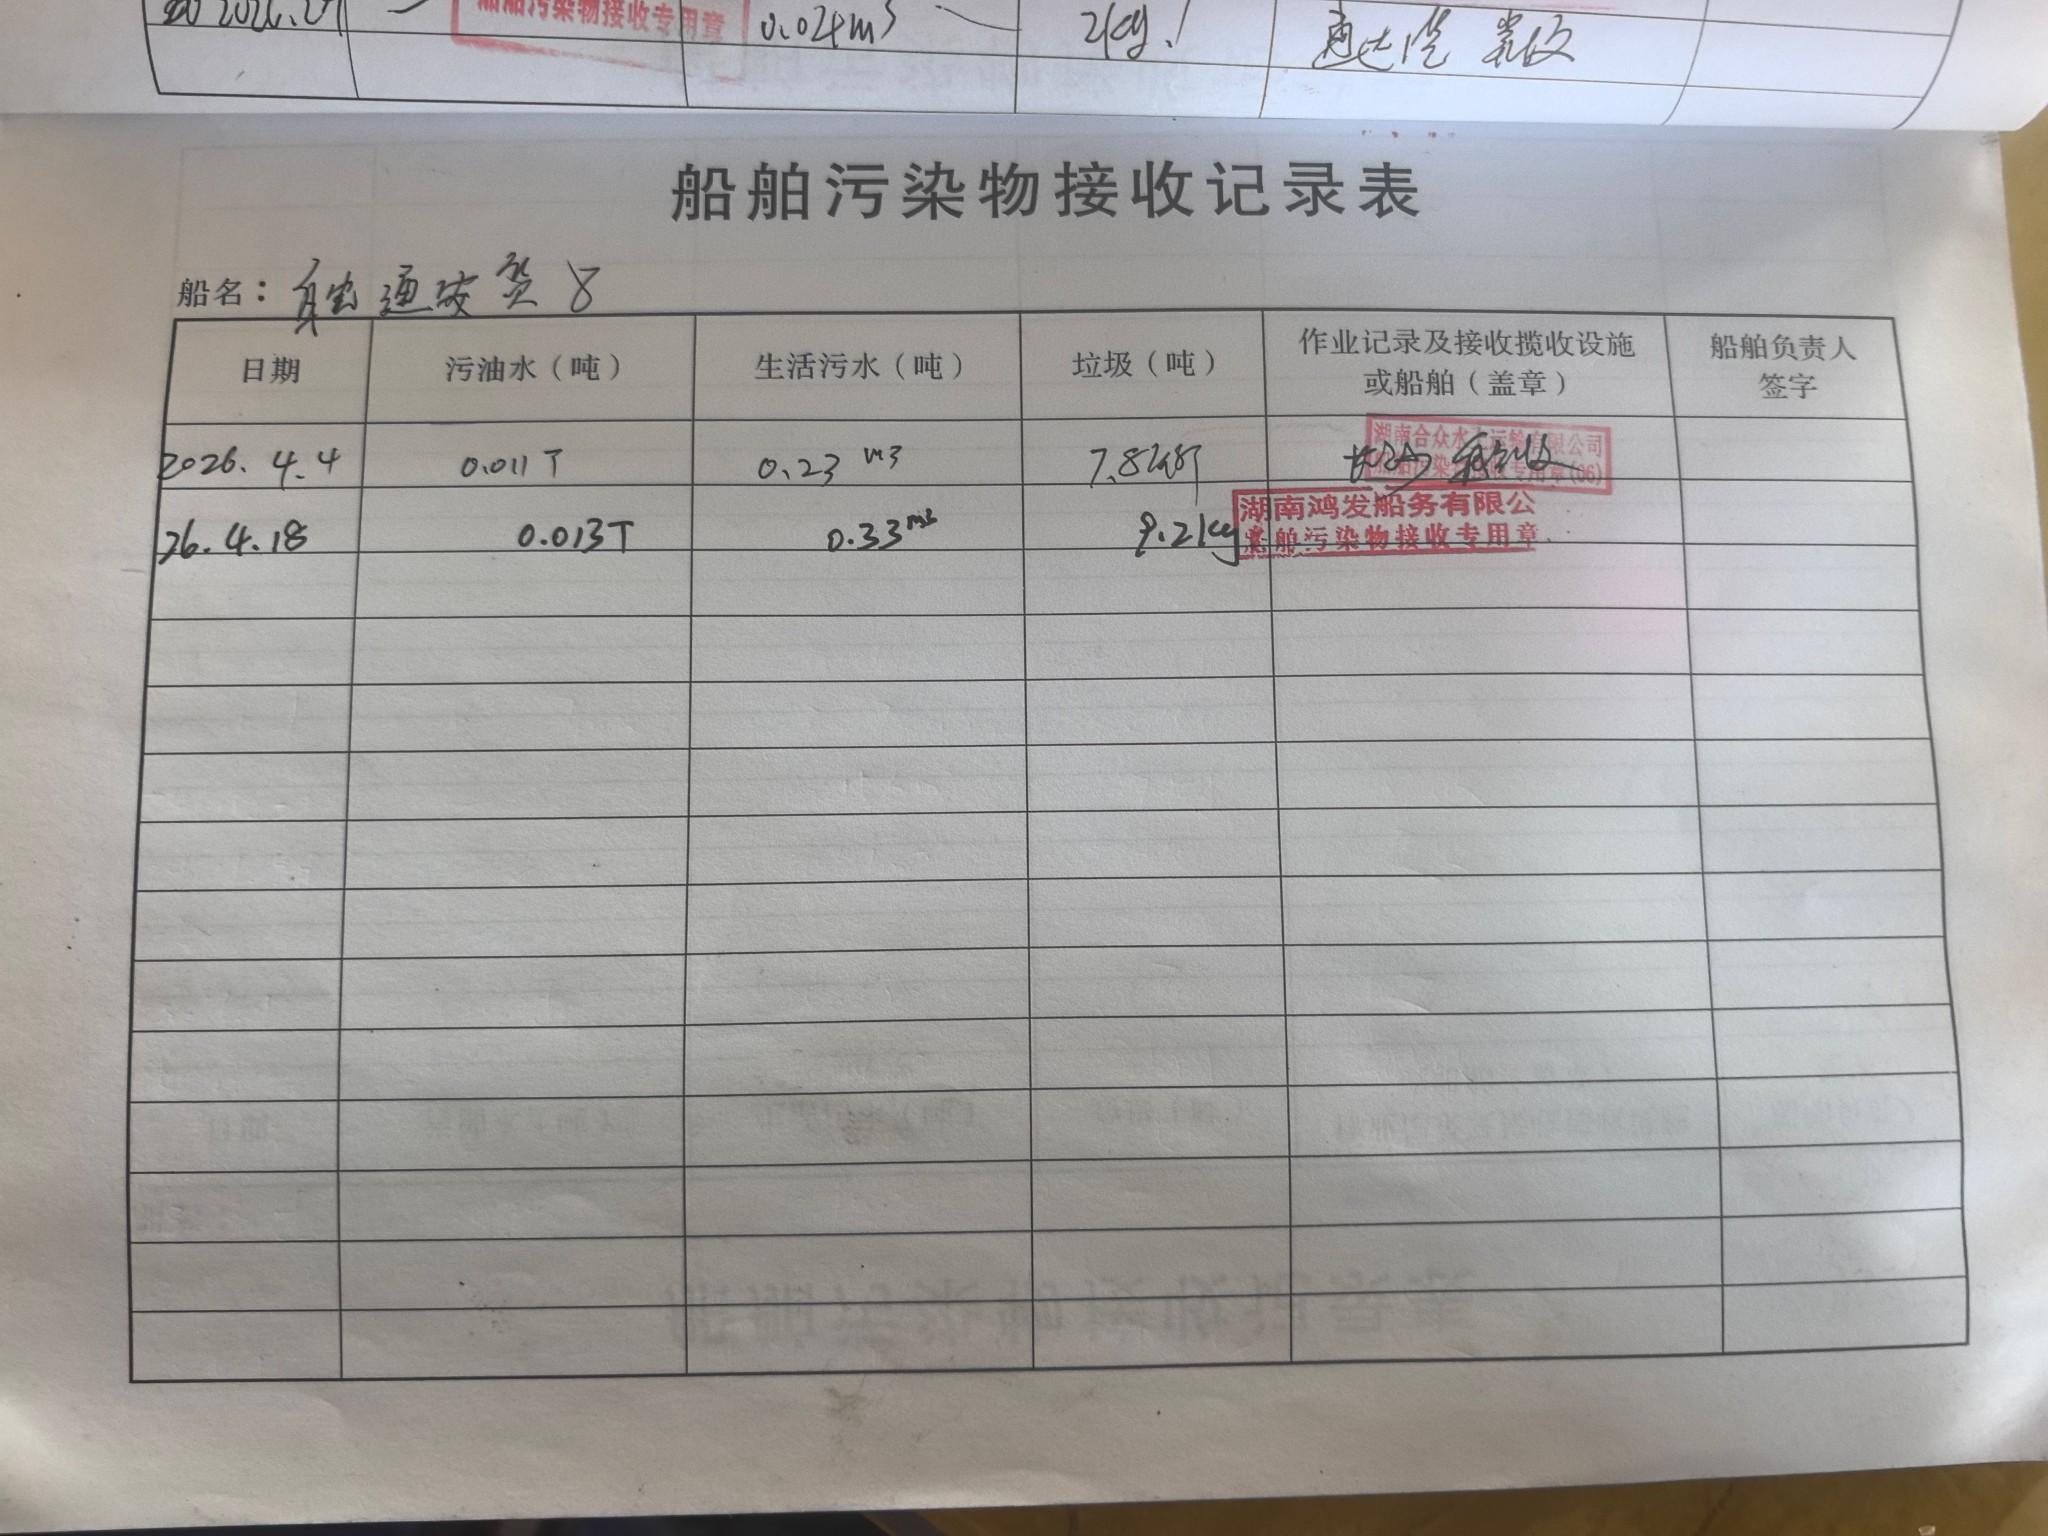 2026.2.
船舶污染物接收专用章
0.04m3
2kg.
船舶污染物接收记录表
船名: 通发货 8
日期 污油水(吨) 生活污水(吨) 垃圾(吨) 作业记录及接收揽收设施或船舶(盖章) 船舶负责人签字
2026.4.4 0.011T 0.23 m3 7.8
湖南合众水上运输有限公司
船舶污染物接收专用章(06)
26.4.18 0.013T 0.33m3 9.2kg
湖南鸿发船务有限公
船舶污染物接收专用章